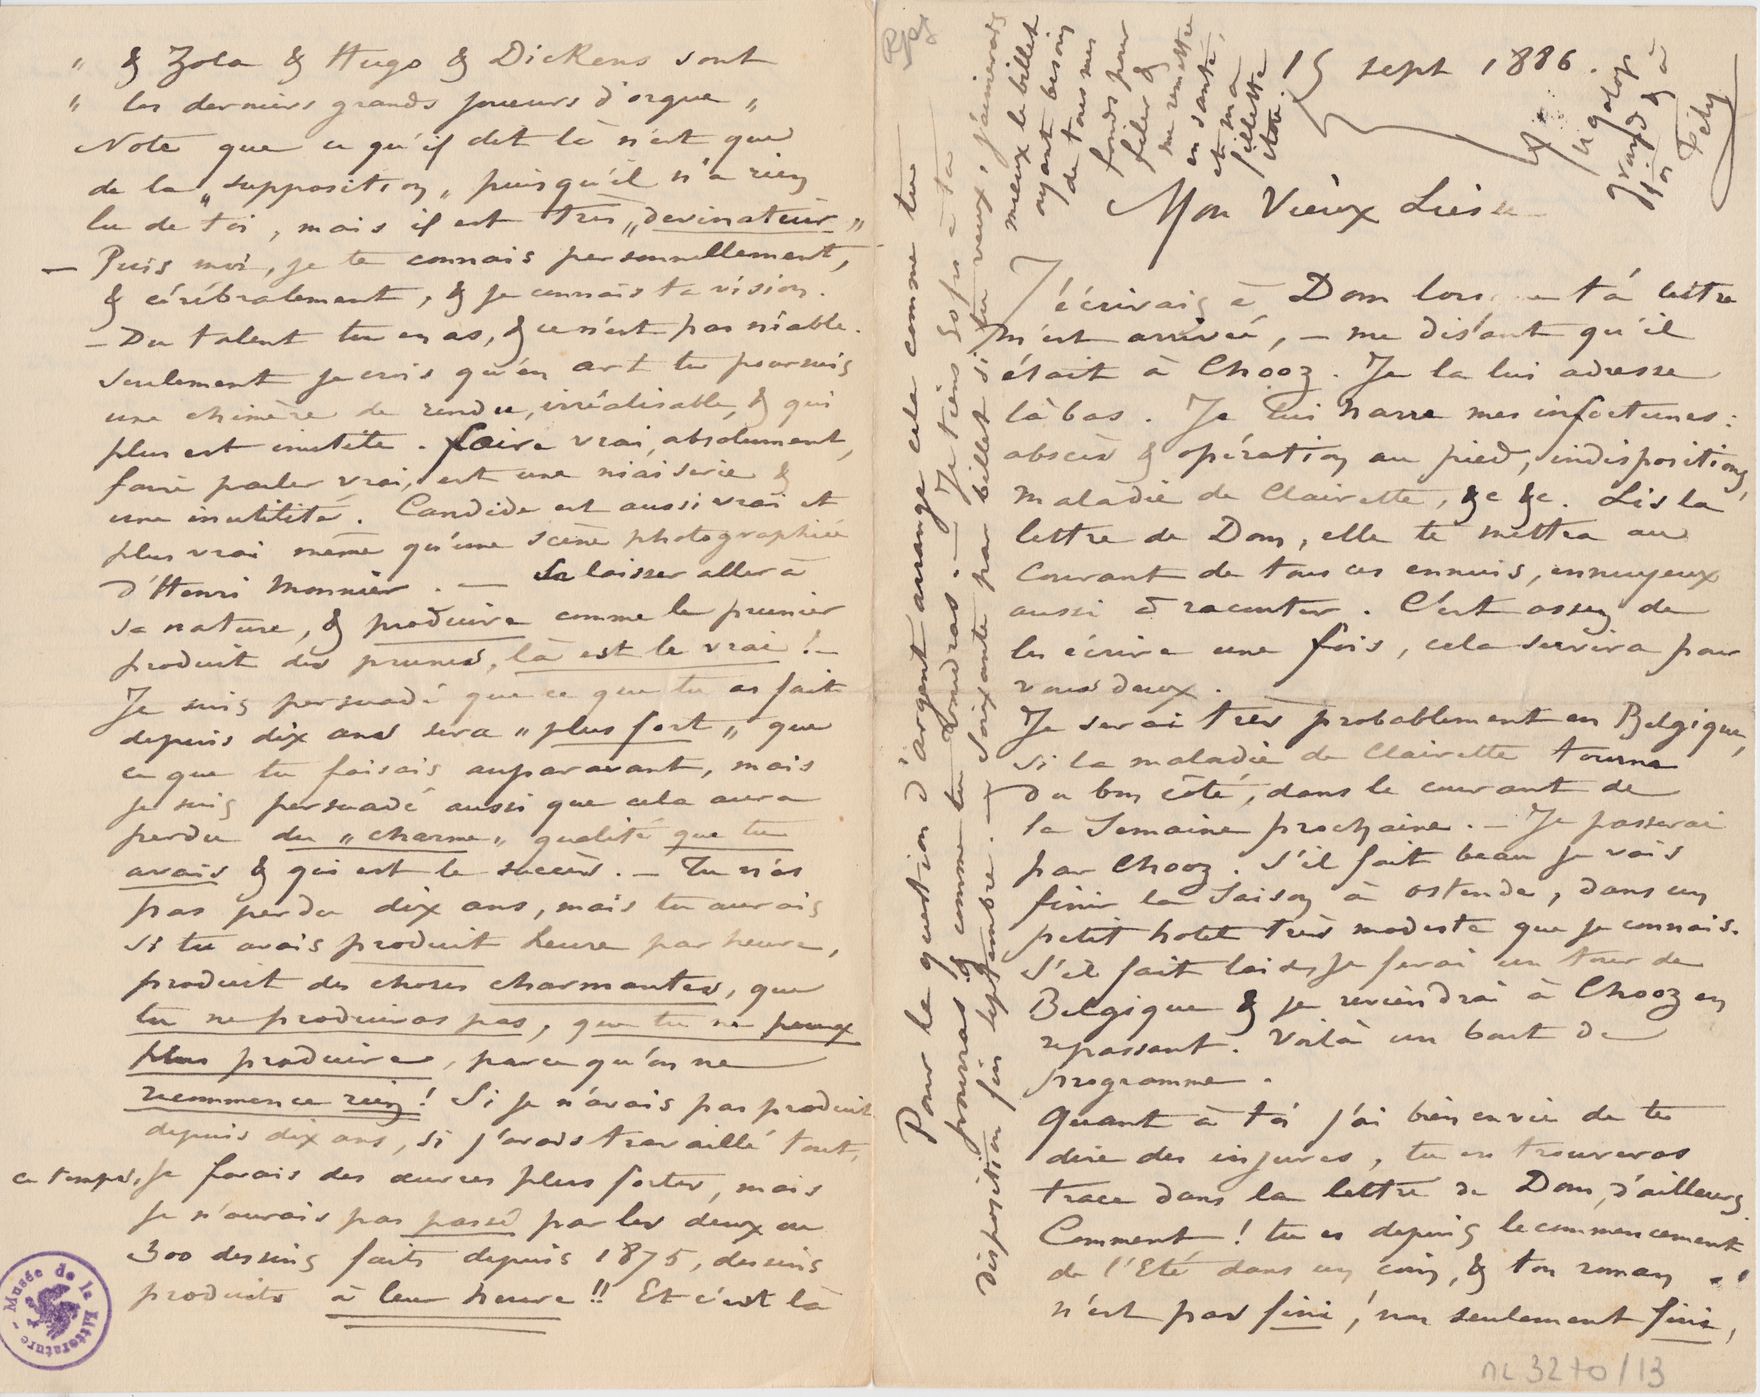 15 sept 1886.
Mon Vieux Liesse
J'écrivais à Dom lorsque ta lettre
m'est arrivée, — me disant qu'il
était à Chooz. Je la lui adresse
là bas. Je lui narre mes infortunes:
abscès & opération au pied, indispositions,
maladie de Clairette, &c &c. Lis la
lettre de Dom, elle te mettra au
courant de tous ces ennuis, ennuyeux
aussi à raconter. C'est assez de
les écrire une fois, cela servira pour
vous deux.
Je serai très probablement en Belgique,
si la maladie de Clairette tourne
du bon côté, dans le courant de
la Semaine prochaine. — Je passerai
par Chooz. S'il fait beau je vais
finir la Saison à Ostende, dans un
petit hotel très modeste que je connais.
S'il fait laid je ferai un tour de
Belgique & je reviendrai à Chooz en
repassant. Voilà un bout de
programme.
Quant à toi j'ai bien envie de te
dire des injures, tu en trouveras
trace dans la lettre de Dom, d'ailleurs
Comment! tu es depuis le commencement
de l'Eté dans un coin, & ton roman
n'est pas fini! non seulement fini,
Pour la question d'argent arrange cela comme tu
pourras & comme tu voudras. — Je tiens 50 frs à ta
disposition fin septembre. — Soixante par billet si tu veux, j'aimerais
mieux le billet
ayant besoin
de tous mes
fonds pour
filer &
me remettre
en santé,
et ma
fillette
itou.
au galop
grand
à toi
Fély
" & Zola & Hugo & Dickens sont
" les derniers grands joueurs d'orgue "
Note que ce qu'il dit là n'est que
de la "supposition" puisqu'il n'a rien
lu de toi, mais il est très "devinateur"
— Puis moi, je te connais personnellement,
& cérébralement, & je connais ta vision.
— Du talent tu en as, & ce n'est pas niable.
Seulement je crois qu'en art tu poursuis
une chimère de rendu, irréalisable, & qui
plus est inutile. faire vrai, absolument,
faire parler vrai, est une niaiserie &
une inutilité. Candide est aussi vrai et
plus vrai même qu'une scène photographiée
d'Henri Monnier. — Se laisser aller à
sa nature, & produire comme le prunier
produit des prunes, là est le vrai! —
Je suis persuadé que ce que tu as fait
depuis dix ans sera "plus fort" que
ce que tu faisais auparavant, mais
je suis persuadé aussi que cela aura
perdu du "charme" qualité que tu
avais & qui est le succès. — Tu n'as
pas perdu dix ans, mais tu aurais
si tu avais produit heure par heure,
produit des choses charmantes, que
tu ne produiras pas, que tu ne peux
plus produire, parce qu'on ne
recommence rien! Si je n'avais pas produit
depuis dix ans, si j'avais travaillé tout
ce temps, je ferais des œuvres plus fortes, mais
je n'aurais pas passé par les deux ou
300 dessins faits depuis 1875, dessins
produits à leur heure!! Et c'est là
Musée de la Littérature
ML 3270/13